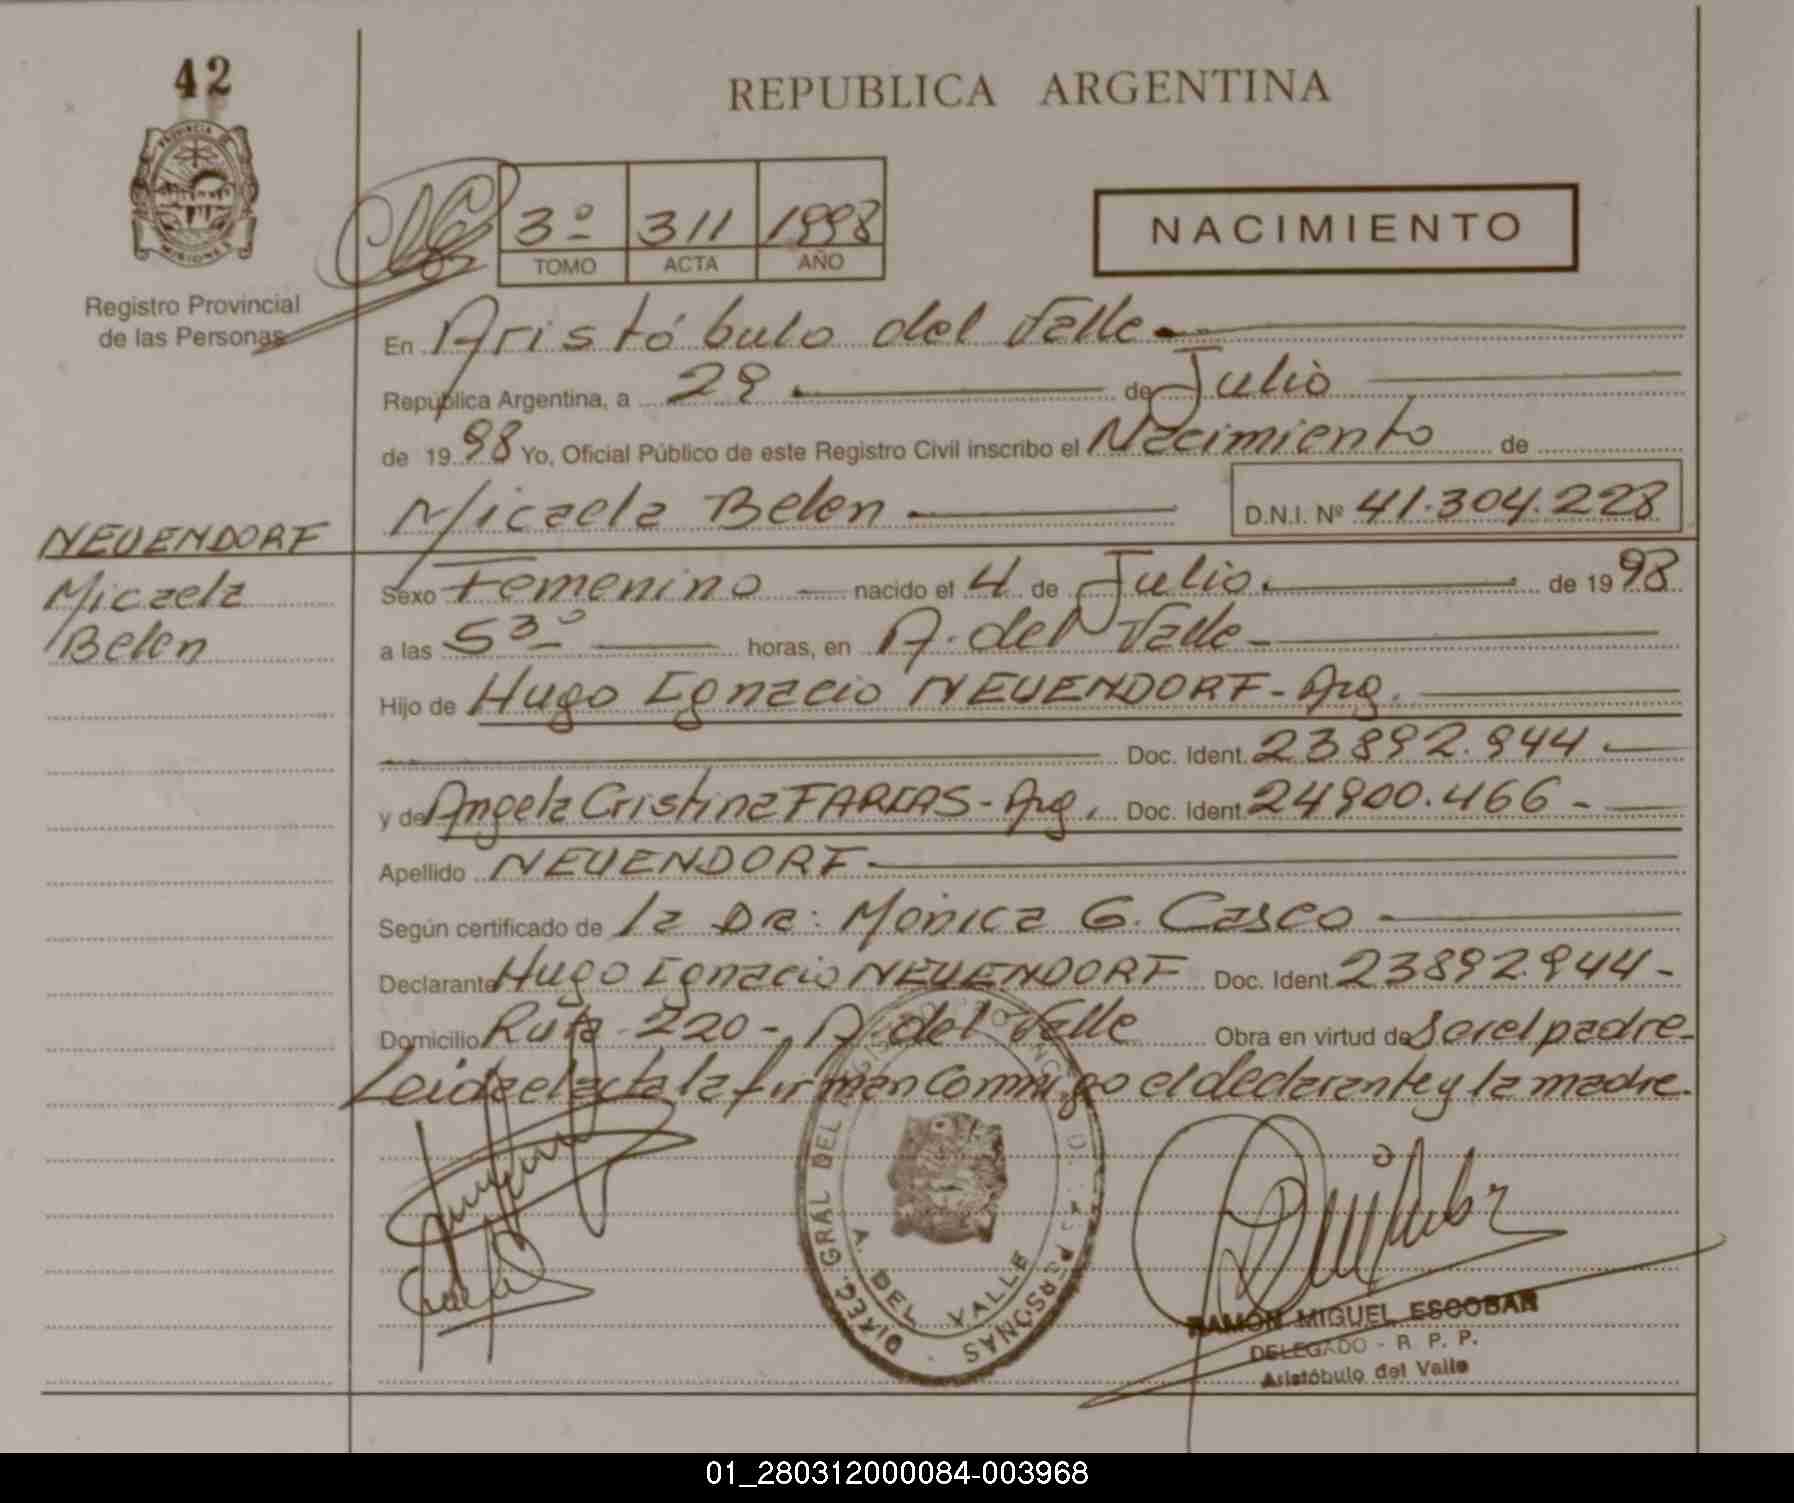 42
REPUBLICA ARGENTINA
PROVINCIA DE
MISIONES
Registro Provincial
de las Personas
3º 311 1998
TOMO ACTA AÑO
NACIMIENTO
En Aristóbulo del Valle
Republica Argentina, a 29 de Julio
de 1998 Yo, Oficial Público de este Registro Civil inscribo el Nacimiento de
Micaela Belen D.N.I. Nº 41.304.228
NEUENDORF
Micaela
Belen
Sexo Femenino nacido el 4 de Julio de 1998
a las 5 3º horas, en A. del Valle
Hijo de Hugo Ignacio NEUENDORF - Arg.
Doc. Ident. 23892.944
y de Angela Cristina FARIAS - Arg. Doc. Ident. 24900.466 -
Apellido NEUENDORF
Según certificado de la Dra: Monica G. Casco
Declarante Hugo Ignacio NEUENDORF Doc. Ident. 23892.944 -
Domicilio Ruta 220 - A. del Valle Obra en virtud de ser el padre -
Leida el acta la firman conmigo el declarante y la madre.
DIREC. GRAL DEL REGISTRO PROVINCIAL DE LAS PERSONAS
A. DEL VALLE
RAMON MIGUEL ESCOBAR
DELEGADO - R. P. P.
Aristóbulo del Valle
01_280312000084-003968